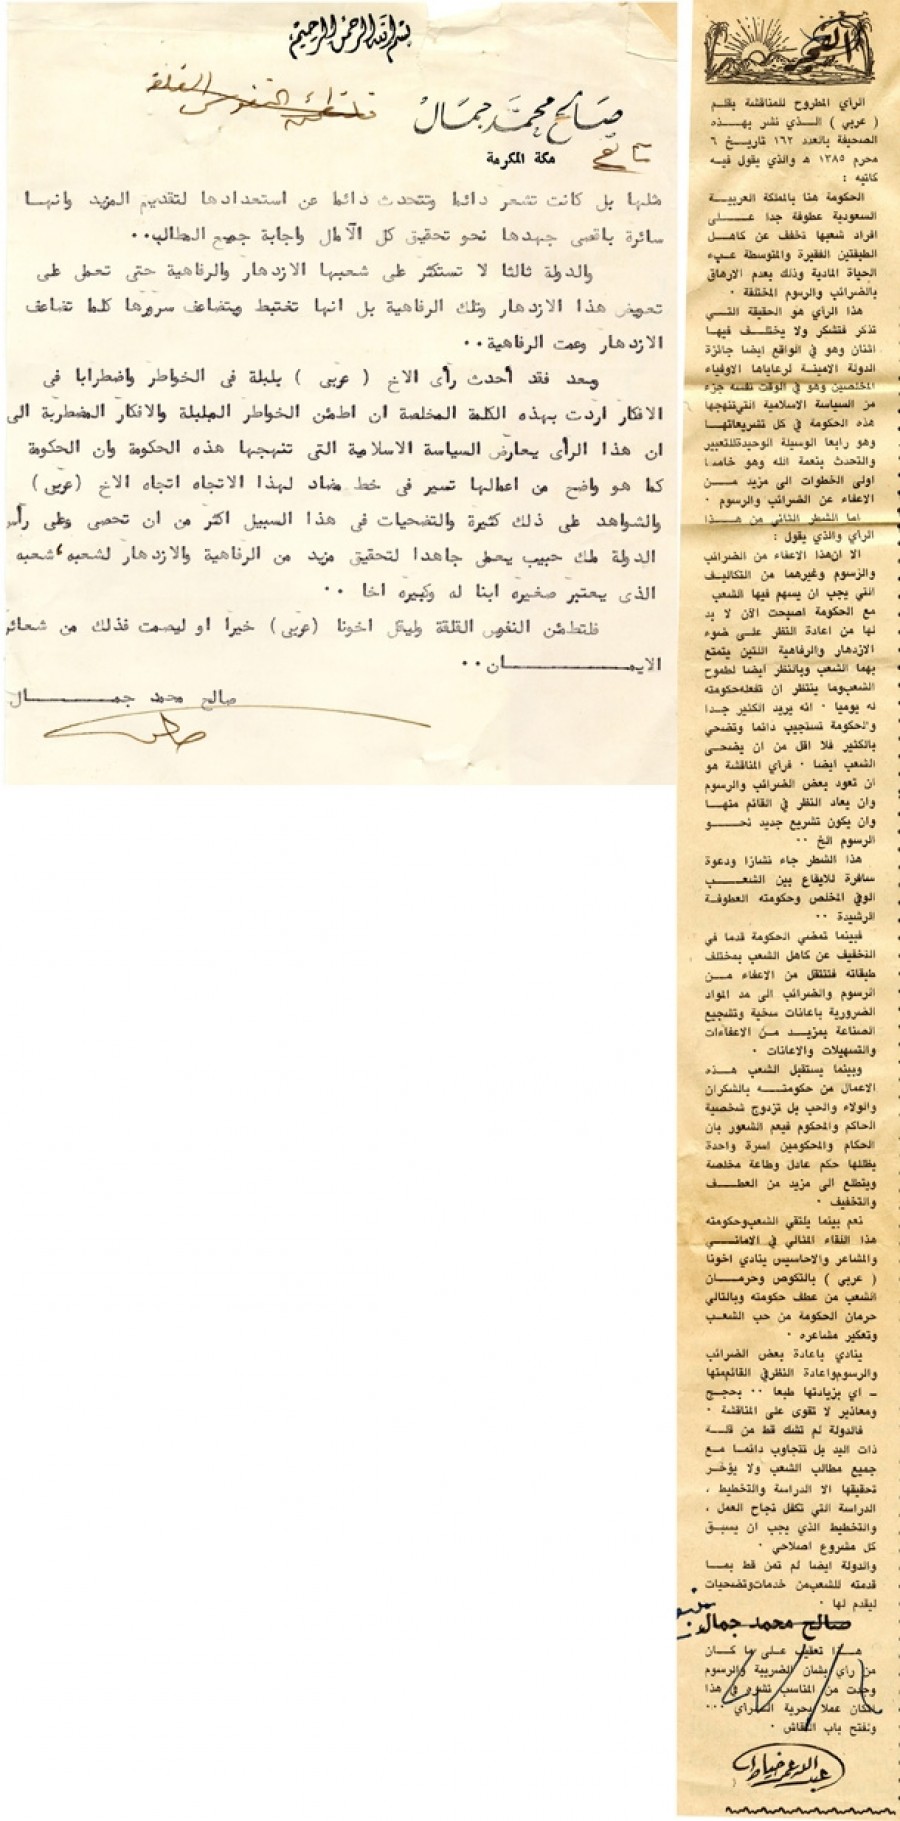 بسم الله الرحمن الرحيم
صالح محمد جمال
مكة المكرمة
مثلها بل كانت تشعر دائما وتتحدث دائما عن استعدادها لتقديم المزيد وانها
سائرة باقصى جهدها نحو تحقيق كل الآمال واجابة جميع المطالب..
والدولة ثالثا لا تستكثر على شعبها الازدهار والرفاهية حتى تعمل على
تعويض هذا الازدهار وتلك الرفاهية بل انها تغتبط ويتضاعف سرورها كلما تضاعف
الازدهار وعمت الرفاهية..
وبعد فقد أحدث رأى الاخ ( عربى ) بلبلة فى الخواطر واضطرابا فى
الافكار اردت بهذه الكلمة المخلصة ان اطمئن الخواطر المبلبلة والافكار المضطربة الى
ان هذا الرأى يعارض السياسة الاسلامية التى تنتهجها هذه الحكومة وان الحكومة
كما هو واضح من اعمالها تسير فى خط مضاد لهذا الاتجاه اتجاه الاخ (عربى)
والشواهد على ذلك كثيرة والتضحيات فى هذا السبيل اكثر من ان تحصى وعلى رأس
الدولة ملك حبيب يعمل جاهدا لتحقيق مزيد من الرفاهية والازدهار لشعبه، شعبه
الذى يعتبر صغيره ابنا له وكبيره اخا ..
فلتطمئن النفوس القلقة وليقل اخونا (عربى) خيرا او ليصمت فذلك من شعائر
الايمــــــان..
صالح محمد جمـــــــال
صالح
الفجر
الرأي المطروح للمناقشة بقلم
( عربي ) الـذي نشر بهــذه
الصحيفة بالعدد ١٦٢ تاريـخ ٦
محرم ١٣٨٥ هـ والذي يقول فيه
كاتبه :
الحكومة هنا بالمملكة العربيـة
السعودية عطوفة جدا عـــلى
افراد شعبها تخفف عن كاهـل
الطبقتين الفقيرة والمتوسطة عبء
الحياة المادية وذلك بعدم الارهاق
بالضرائب والرسوم المختلفة .
هذا الرأي هو الحقيقة التـي
تذكر فتشكر ولا يختلـف فيها
اثنان وهو في الواقع ايضا جائزة
الدولة الامينة لرعاياها الاوفياء
المخلصين وهو في الوقت نفسه جزء
من السياسة الاسلامية التي تنتهجها
هذه الحكومة في كل تشريعاتهـا
وهو رابعا الوسيلة الوحيدة للتعبير
والتحدث بنعمة الله وهو خامسا
اولى الخطوات الى مزيد مـــن
الاعفاء عن الضرائب والرسوم .
اما الشطر الثاني من هــذا
الرأي والذي يقول :
الا ان هذا الاعفاء من الضرائب
والرسوم وغيرهما من التكاليف
التي يجب ان يسهم فيها الشعب
مع الحكومة اصبحت الآن لا بد
لها من اعادة النظر علـى ضوء
الازدهار والرفاهية اللتين يتمتع
بهما الشعب وبالنظر ايضا لطموح
الشعب وما ينتظر ان تفعله حكومته
له يوميا . انه يريد الكثير جـدا
والحكومة تستجيب دائما وتضحي
بالكثير فلا اقل من ان يضحـى
الشعب ايضا . فرأي المناقشة هو
ان تعود بعض الضرائب والرسوم
وان يعاد النظر في القائم منهــا
وان يكون تشريع جديد نحـــو
الرسوم الخ ..
هذا الشطر جاء نشازا ودعوة
سافرة للايقاع بين الشعـــب
الوفي المخلص وحكومته العطوفة
الرشيدة ..
فبينما تمضي الحكومة قدما في
التخفيف عن كاهل الشعب بمختلف
طبقاته فتنتقل من الاعفاء مــن
الرسوم والضرائب الى مد المواد
الضرورية باعانات سخية وتشجيع
الصناعة بمزيــد مـن الاعفاءات
والتسهيلات والاعانات .
وبينما يستقبل الشعب هــذه
الاعمال من حكومتـــه بالشكران
والولاء والحب بل تزدوج شخصية
الحاكم والمحكوم فيعم الشعور بان
الحكام والمحكومين اسرة واحدة
يظللها حكم عادل وطاعة مخلصة
ويتطلع الى مزيد من العطـــف
والتخفيف .
نعم بينما يلتقي الشعب وحكومته
هذا اللقاء المثالي في الامانـــي
والمشاعر والاحاسيس ينادي اخونا
( عربي ) بالنكوص وحرمــان
الشعب من عطف حكومته وبالتالي
حرمان الحكومة من حب الشعـب
وتعكير مشاعره .
ينادي باعادة بعض الضرائب
والرسوم واعادة النظر في القائم منها
ـ اي بزيادتها طبعا .. بحجـج
ومعاذير لا تقوى على المناقشة .
فالدولة لم تشك قط من قلــة
ذات اليد بل تتجاوب دائمـا مـع
جميع مطالب الشعب ولا يؤخـر
تحقيقها الا الدراسة والتخطيط ،
الدراسة التي تكفل نجاح العمل ،
والتخطيط الذي يجب ان يسبـق
كل مشروع اصلاحي .
والدولة ايضا لم تمن قط بمـا
قدمته للشعب من خدمات وتضحيات
ليقدم لها .
صالح محمد جمال
هــذا تعقيب علـى ما كــان
من رأي بشأن الضريبة والرسوم
وجدت من المناسب نشره في هذا
المكان عملا بحرية الــرأي ...
ونفتح باب النقاش .
عبد الله عمر خياط